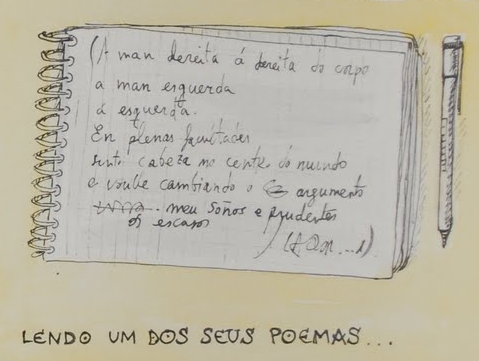 (A man dereita á dereita do corpo
a man esquerda
á esquerda.
En plenas facultades
sinto cabeza no centro do mundo
e voube cambiando o argumento
meu soños e prudentes
os escasos
LENDO UM DOS SEUS POEMAS...